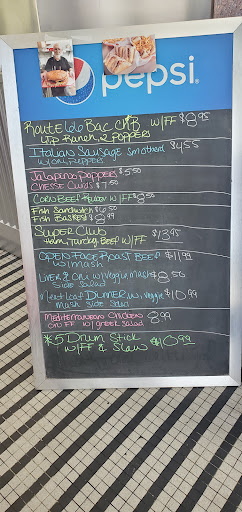 pepsi
Route 66 Bac CHB w/FF $8.95
w/ Ranch & Poppers
Italian Sausage Smothered $4.55
w/on, peppers
Jalapano Poppers $5.50
Cheese Curds $7.50
Corn Beef Ruben w/FF $8.55
Fish Sandwich $6.50
Fish Basket $8.99
Super Club $13.95
Ham, Turkey, Beef w/FF
Open Face Roast Beef $11.99
w/mash
Liver & On w/Veggie Mash $8.50
Side Salad
Meat Loaf Dinner w. Veggie $10.99
Mash Side Salad
Mediterranean Chicken 8.99
on FF w/ Greek Salad
*5 Drum Stick $10.99
w/FF & Slaw